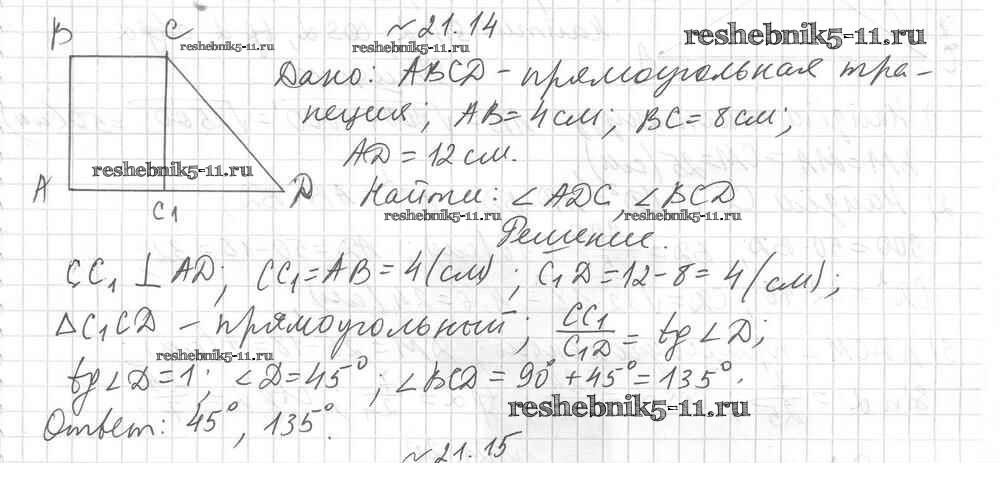 № 21.14
B C
reshebnik5-11.ru reshebnik5-11.ru reshebnik5-11.ru
Дано: ABCD – прямоугольная тра-
пеция; AB = 4 см; BC = 8 см;
AD = 12 см.
reshebnik5-11.ru
A C1 D
Найти: ∠ADC, ∠BCD
reshebnik5-11.ru
Решение.
CC₁ ⊥ AD; CC₁ = AB = 4 (см); C₁D = 12 – 8 = 4 (см);
△C₁CD – прямоугольный; CC₁/C₁D = tg∠D;
reshebnik5-11.ru
tg∠D = 1; ∠D = 45°; ∠BCD = 90° + 45° = 135°.
reshebnik5-11.ru
Ответ: 45°, 135°.
№ 21.15